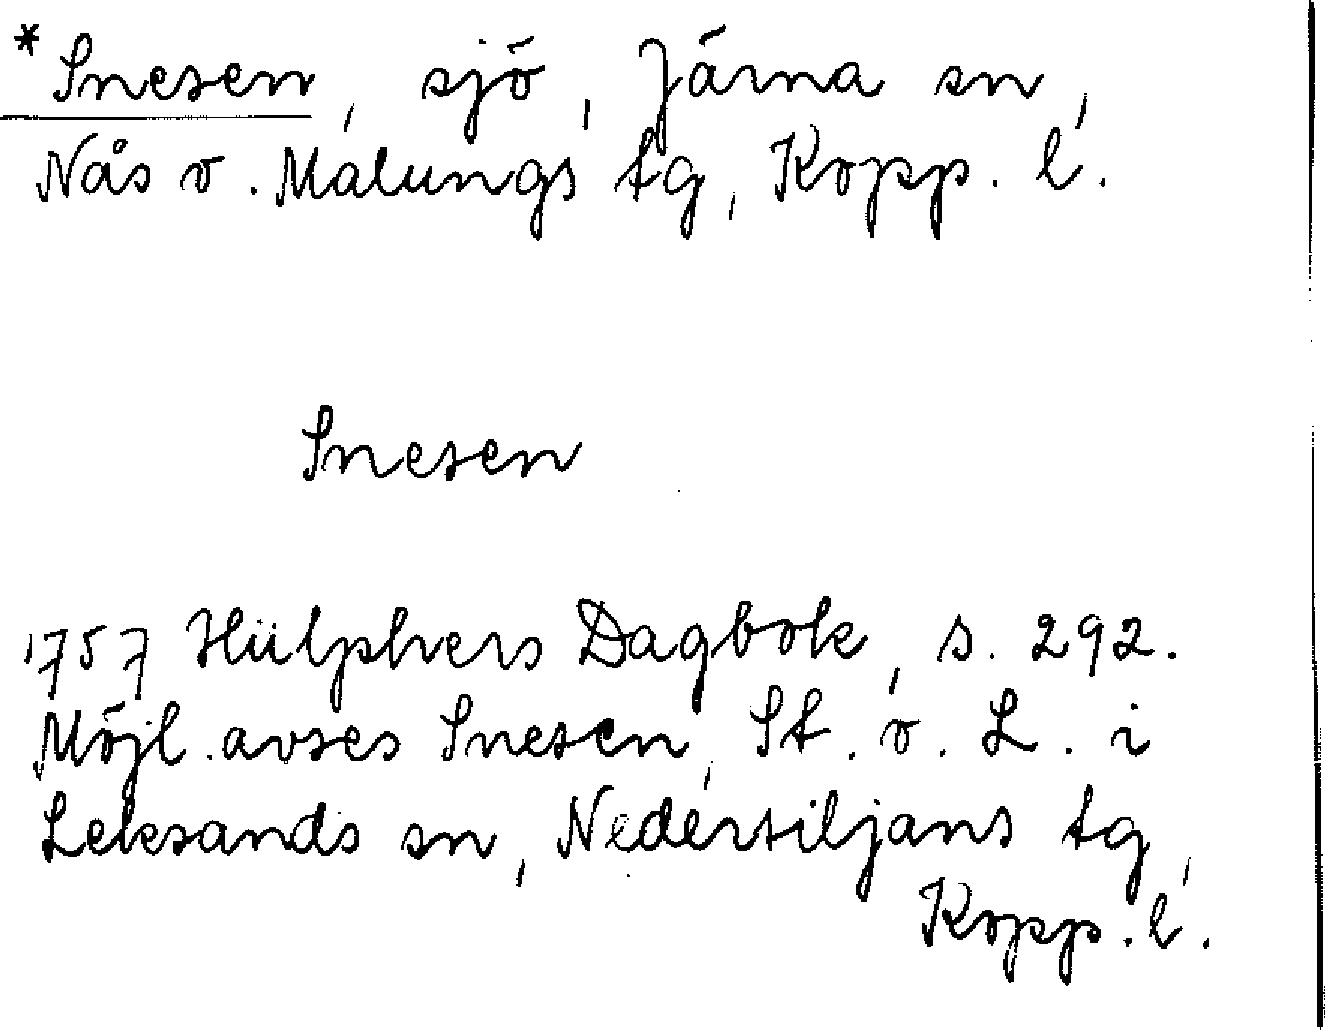 *Snesen, sjö, Järna sn,
Nås o. Malungs tg, Kopp. l.
Snesen
1757 Hülphers Dagbok, s. 292.
Möjl. avses Snesen, St. o. L. i
Leksands sn, Nedersiljans tg,
Kopp. l.